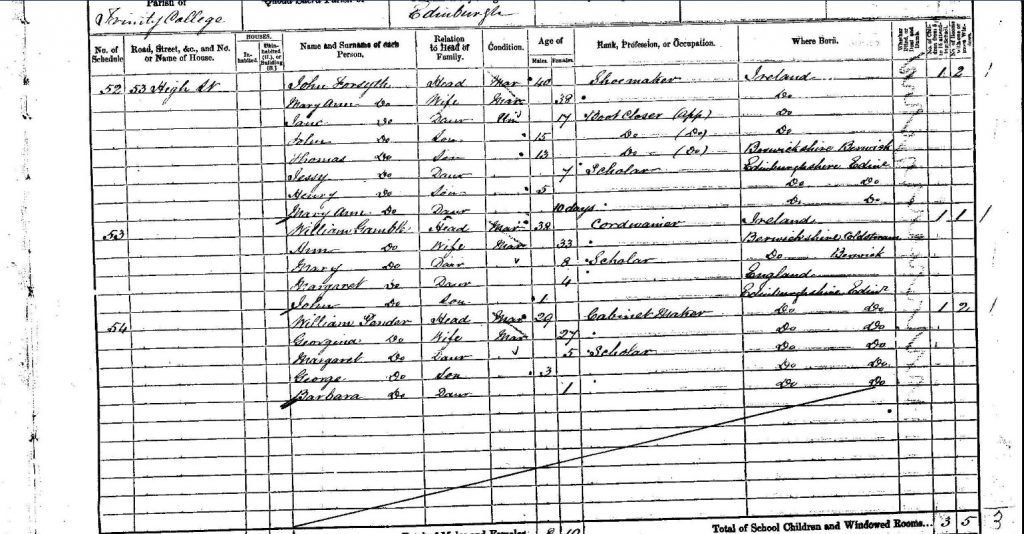 Parish of
Trinity College
Edinburgh
No. of Schedule
Road, Street, &c., and No. or Name of House.
HOUSES.
Name and Surname of each Person.
Relation to Head of Family.
Condition.
Age of
Males. Females.
Rank, Profession, or Occupation.
Where Born.
52 53 High St John Forsyth Head Mar 40 Shoemaker Ireland 1 2 1
Mary Ann Do Wife Mar 38 Do
Jane Do Daur Un 17 Boot Closer (App) Do
John Do Son 15 Do (Do) Do
Thomas Do Son 13 Do (Do) Berwickshire Berwick
Jessy Do Daur 7 Scholar Edinburgshire Edinr
Henry Do Son 5 Do Do
Mary Ann Do Daur 10 days Do Do
53 William Gamble Head Mar 38 Cordwainer Ireland 1 1 1
Ann Do Wife Mar 33 Berwickshire Coldstream
Mary Do Daur 8 Scholar Do Berwick
Margaret Do Daur 4 England
John Do Son 1 Edinburgshire Edinr
54 William Pender Head Mar 29 Cabinet Maker Do Do 1 2 1
Georgina Do Wife Mar 27 Do Do
Margaret Do Daur 5 Scholar Do Do
George Do Son 3 Do Do
Barbara Do Daur 1 Do Do
Total of School Children and Windowed Rooms... 3 5 3